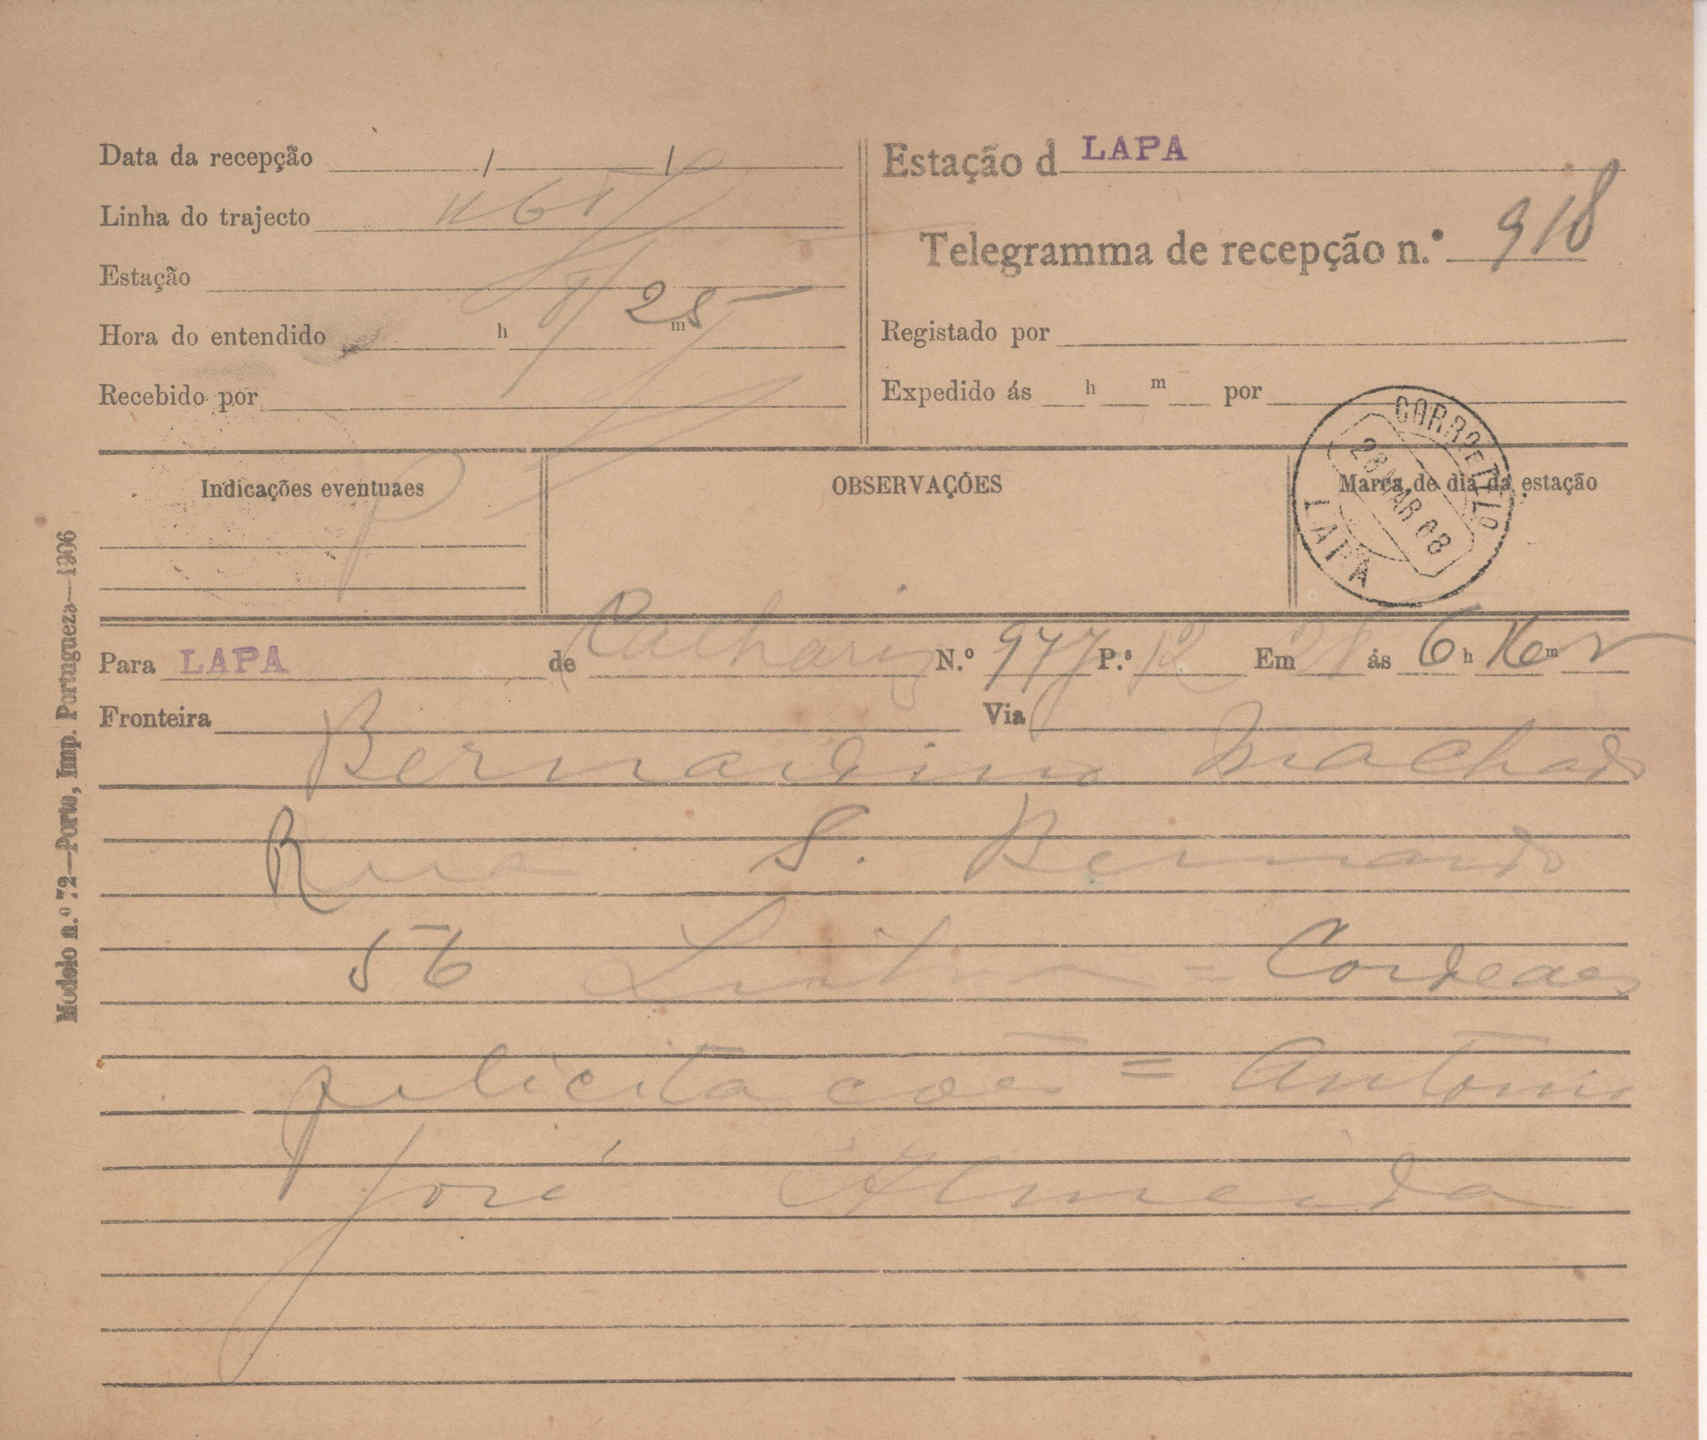 Data da recepção
Linha do trajecto
Estação
Hora do entendido h 25 m
Recebido por
Estação d LAPA
Telegramma de recepção n.º 918
Registado por
Expedido ás h m por
Indicações eventuaes
OBSERVAÇÕES
Marca de dia da estação
CORRO E TELO
28 MAR 08
LAPA
Para LAPA de Calhariz N.º 977 P.s 12 Em 28 ás 6 h m
Fronteira Via
Bernardino Machado
Rua S. Bernardo
56 Lisboa = Cordeaes
felicitacoēs = Antonio
José Almeida
Modelo n.º 72—Porto, Imp. Portugueza—1906